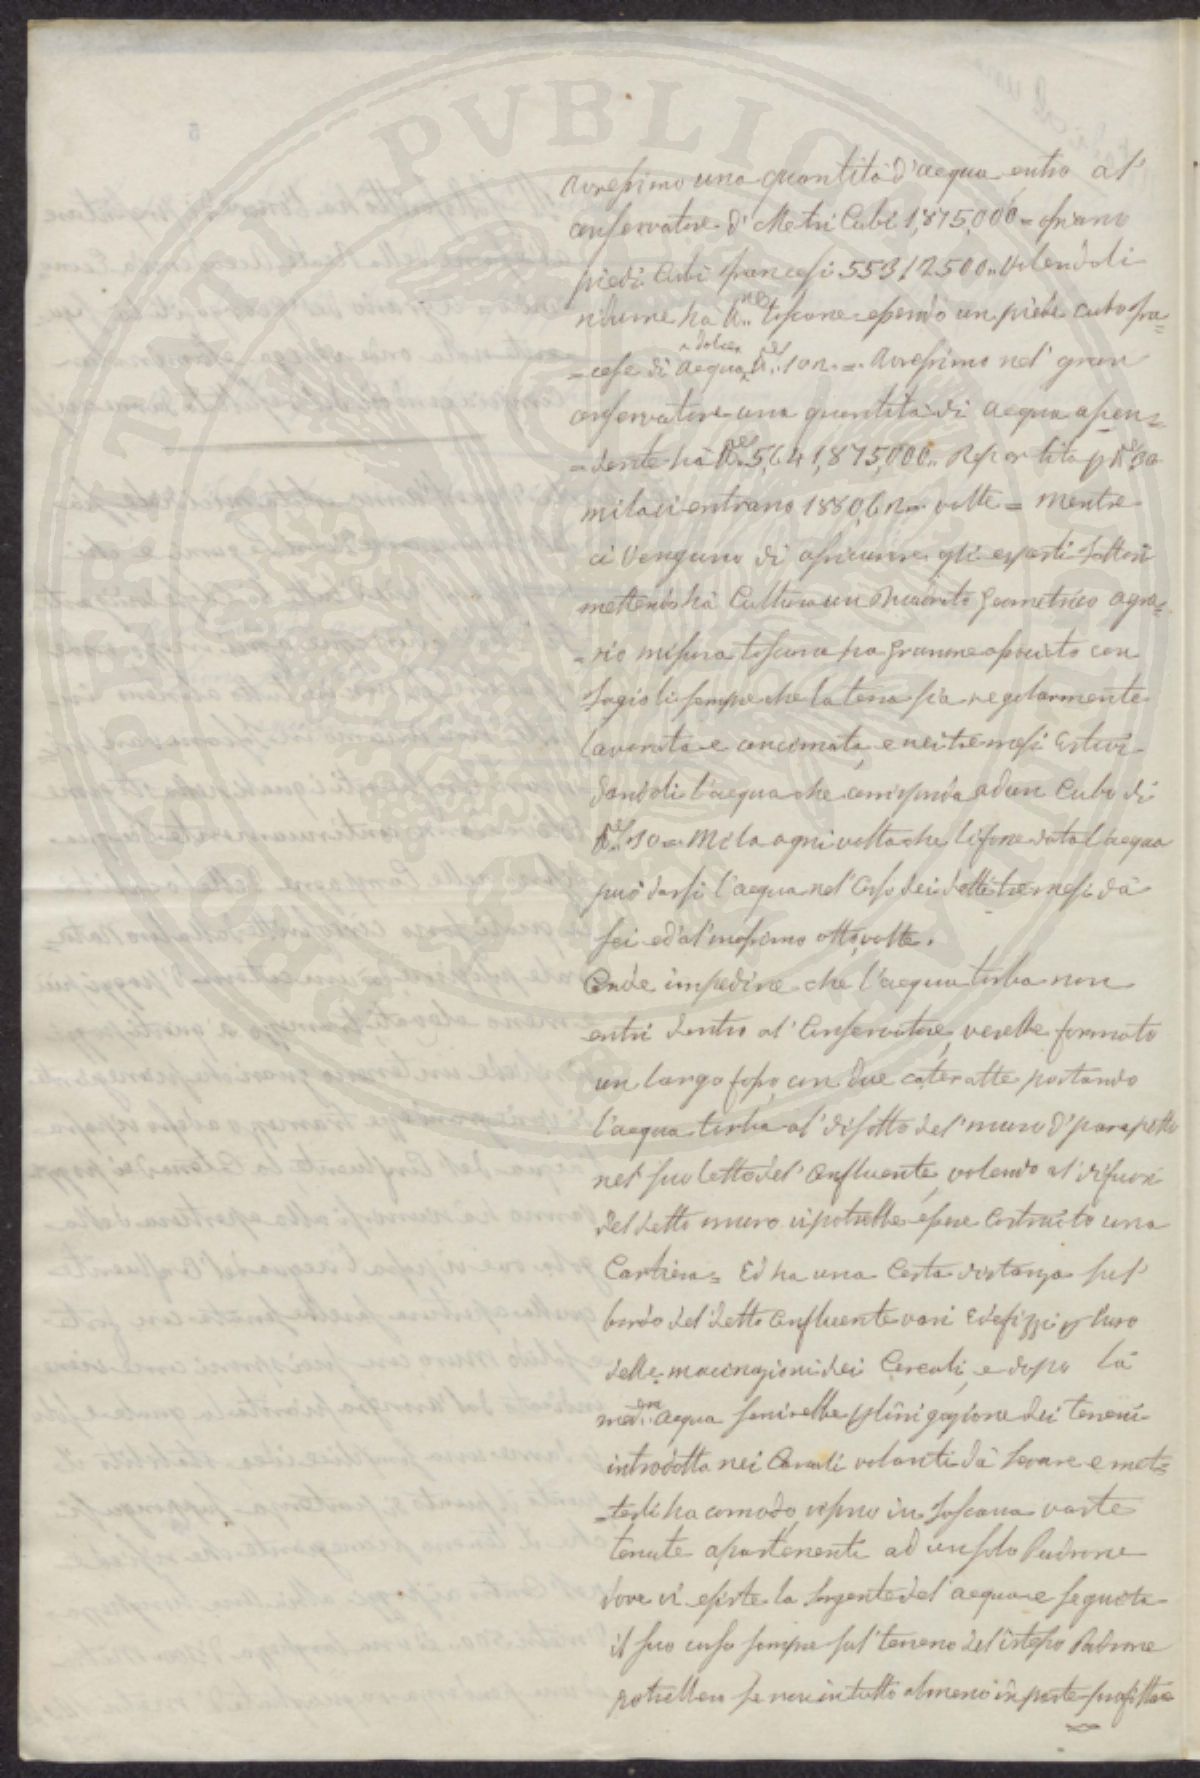 PVBLICÆ
avressimo una quantità d'acqua entro al'
conservatore di Metri Cubi 1,875,000 = ossiano
piedi Cubi francesi 55312500.. Volendoli
ridurre ha toscane essendo un piede cubo fra=
dolce
=cese di acqua 102 = Avressimo nel' gran
conservatore una quantità di acqua assen=
=dente hà 5,641,875,000.. Repartita p
mila ci entrano volte = mentre
ci Vengano di assicurare gli esperti fattori
mettendo hà Cultura un Quadrato geometrico agra=
=rio misura toscana ha granone con
fagioli sempre che la terra sia regolarmente
lavorata e concimata, e nei tre mesi Estivi
dandoli l'acqua che corrisponda ad un Cubo di
10 = Mila ogni volta che li fosse data l'acqua
può darsi l'acqua nel' Corso dei detti tre mesi dà
sei ed al' massimo otto volte.
Onde impedire che l'acqua torba non
entri dentro al' Conservatore, verebbe formato
un largo fosso con due cateratte portando
l'acqua torba al' disotto del' muro d'parapetto
nel' suo letto del' Confluente, volendo al' difuori
del detto muro vi potrebbe essere Costruito una
Cartiera = Ed ha una Certa distanza sul'
bordo del' detto Confluente vari Edefizzi p l'uso
delle macinazioni dei Cereali, e dopo la
med.em acqua servirebbe p l'irrigazione dei terreni
introdotta nei Canali volanti dà levare e met=
=terli ha comodo, in Toscana vaste
tenute apartenenti ad un solo Padrone
dove vi esiste la Sorgente del' acqua e seguita
il suo corso sempre sul' terreno del' istesso Padrone
potrebbesi se non in tutto almeno in parte profittare